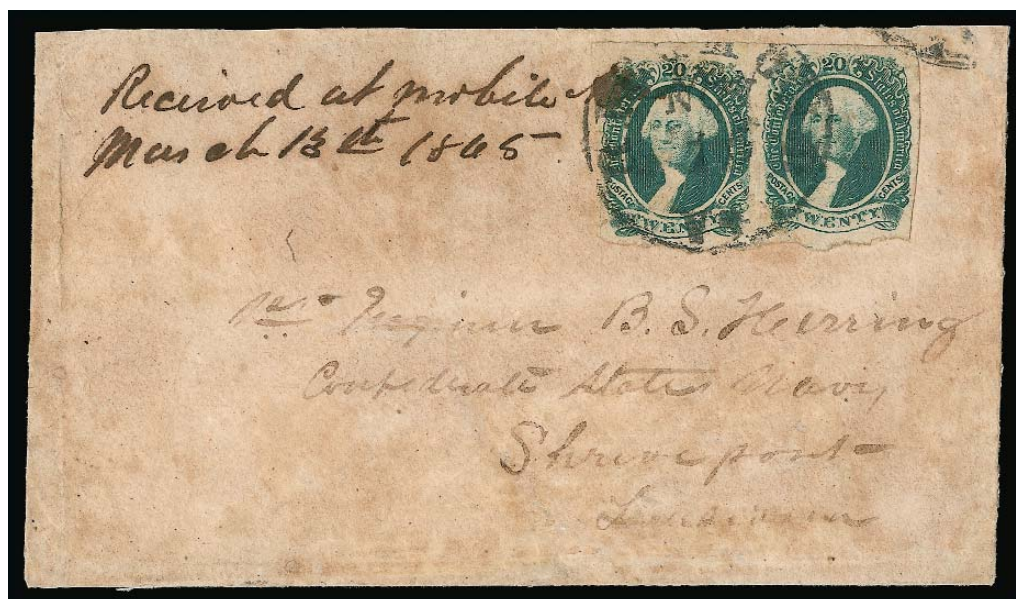 Received at mobile
March 13th 1865
20
The Confederate States of America
POSTAGE CENTS
TWENTY
20
The Confederate States of America
POSTAGE CENTS
TWENTY
B. S. Herring
Confederate States Navy
Shreveport
Louisiana